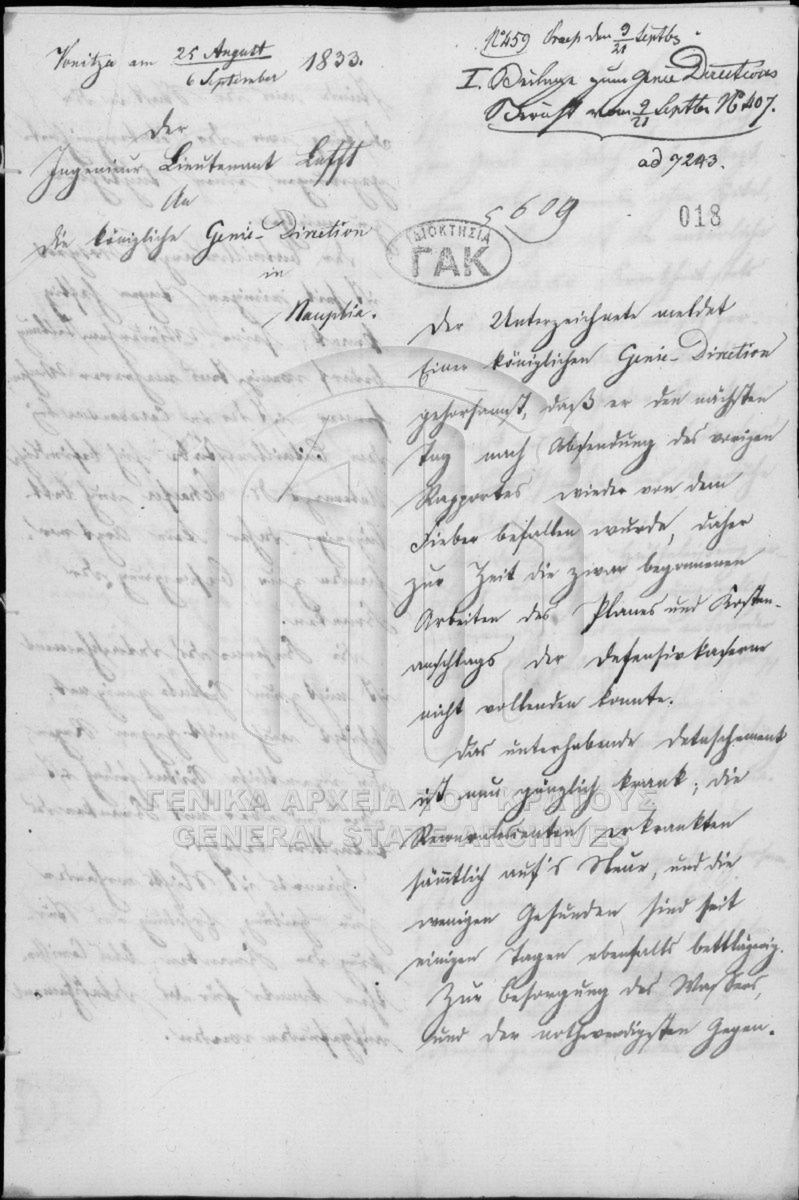 Vonitza am 25 August / 6 September 1833.
Der
Ingenieur Lieutenant Lafft
An
Die königliche Genie-Direction
in
Nauplia.
No 459 Praes. den 9/21 Septbr
I. Beilage zum Genie Directions
Bericht vom 9/21 Septbr No 407.
ad 7243.
5609
018
ΙΔΙΟΚΤΗΣΙΑ
ΓΑΚ
Der Unterzeichnete meldet
Einer königlichen Genie-Direction
gehorsamst, daß er den nächsten
Tag nach Absendung des vorigen
Rapportes wieder von dem
Fieber befallen wurde, daher
zur Zeit die zwar begonnenen
Arbeiten des Planes und Kosten-
anschlags der Defensivkaserne
nicht vollenden konnte.
Das unterhabende Detaschement
ist nun gänzlich krank; die
Reconvalescenten erkrankten
sämtlich auf's Neue, und die
wenigen Gesunden sind seit
einigen Tagen ebenfalls bettlägrig.
Zur Besorgung des Wassers,
und der nothwendigsten Gegen-
ΓΕΝΙΚΑ ΑΡΧΕΙΑ ΤΟΥ ΚΡΑΤΟΥΣ
GENERAL STATE ARCHIVES